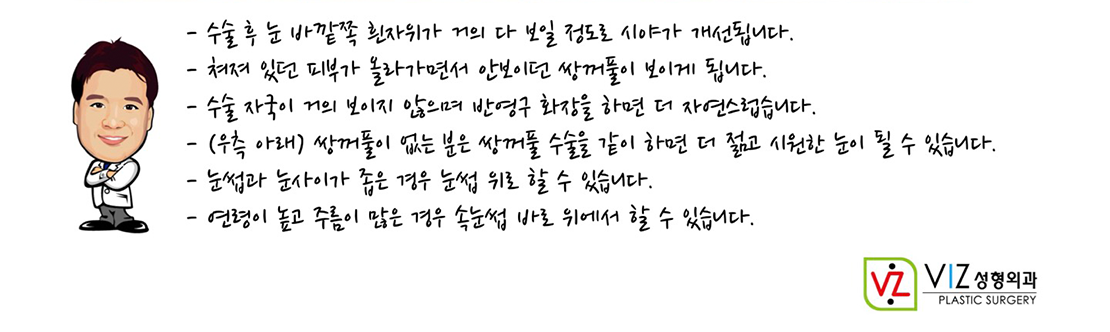 - 수술 후 눈 바깥쪽 흰자위가 거의 다 보일 정도로 시야가 개선됩니다.
- 쳐져 있던 피부가 올라가면서 안보이던 쌍꺼풀이 보이게 됩니다.
- 수술 자국이 거의 보이지 않으며 반영구 화장을 하면 더 자연스럽습니다.
- (우측 아래) 쌍꺼풀이 없는 분은 쌍꺼풀 수술을 같이 하면 더 젊고 시원한 눈이 될 수 있습니다.
- 눈썹과 눈사이가 좁은 경우 눈썹 위로 할 수 있습니다.
- 연령이 높고 주름이 많은 경우 속눈썹 바로 위에서 할 수 있습니다.
VIZ VIZ 성형외과
PLASTIC SURGERY